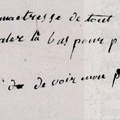 maitresse de tout
aler là bas pour p
de voir mon p